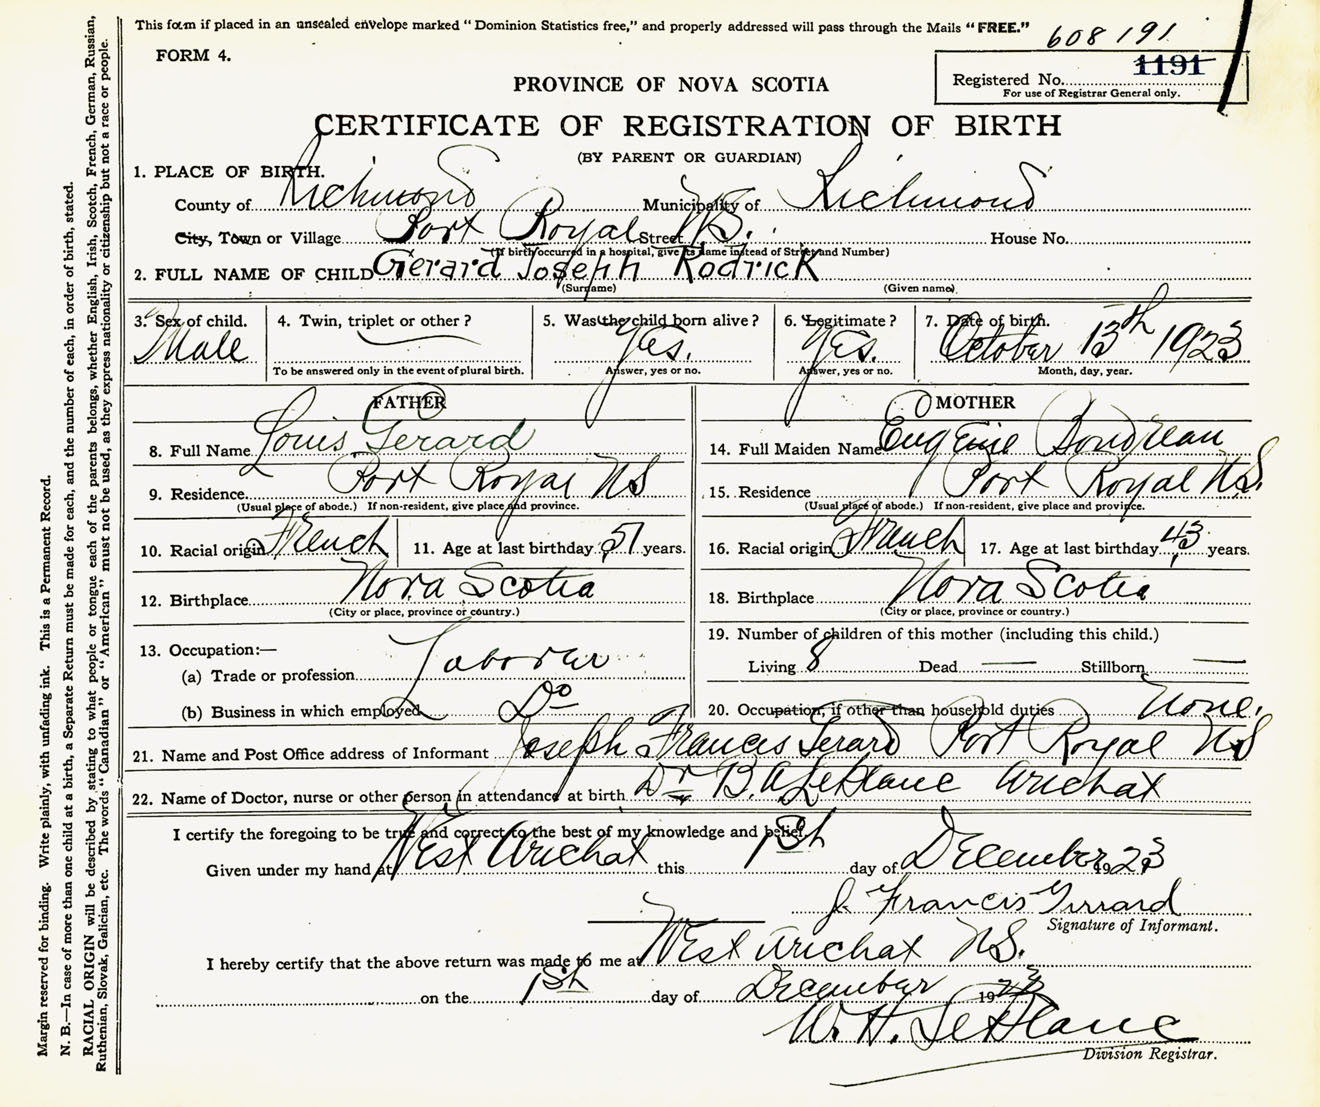 This form if placed in an unsealed envelope marked “Dominion Statistics free,” and properly addressed will pass through the Mails “FREE.”
608191
FORM 4.
Registered No. 1191
For use of Registrar General only.
PROVINCE OF NOVA SCOTIA
CERTIFICATE OF REGISTRATION OF BIRTH
(BY PARENT OR GUARDIAN)
1. PLACE OF BIRTH.
County of Richmond Municipality of Richmond
City, Town or Village Port Royal Street N.S. House No.
(If birth occurred in a hospital, give its name instead of Street and Number)
2. FULL NAME OF CHILD Gerard Joseph Rodrick
(Surname) (Given name)
3. Sex of child. 4. Twin, triplet or other? 5. Was the child born alive? 6. Legitimate? 7. Date of birth.
Male Yes. Yes. October 13th 1923
To be answered only in the event of plural birth. Answer, yes or no. Answer, yes or no. Month, day, year.
FATHER MOTHER
8. Full Name Louis Gerard 14. Full Maiden Name Eugenie Boudreau
9. Residence Port Royal NS 15. Residence Port Royal N.S.
(Usual place of abode.) If non-resident, give place and province. (Usual place of abode.) If non-resident, give place and province.
10. Racial origin French 11. Age at last birthday 51 years. 16. Racial origin French 17. Age at last birthday 43 years.
12. Birthplace Nova Scotia 18. Birthplace Nova Scotia
(City or place, province or country.) (City or place, province or country.)
13. Occupation:— 19. Number of children of this mother (including this child.)
(a) Trade or profession Laborer Living 8 Dead — Stillborn —
(b) Business in which employed Do 20. Occupation, if other than household duties None.
21. Name and Post Office address of Informant Joseph Francis Gerard Port Royal NS
22. Name of Doctor, nurse or other person in attendance at birth Dr B. A LeBlanc Arichat
I certify the foregoing to be true and correct to the best of my knowledge and belief.
Given under my hand at West Arichat this 1st day of December 1923
J. Francis Girrard
Signature of Informant.
I hereby certify that the above return was made to me at West Arichat N.S.
on the 1st day of December 1923
W. H. LeBlanc
Division Registrar.
Margin reserved for binding. Write plainly, with unfading ink. This is a Permanent Record.
N. B.—In case of more than one child at a birth, a Separate Return must be made for each, and the number of each, in order of birth, stated.
RACIAL ORIGIN will be described by stating to what people or tongue each of the parents belongs, whether English, Irish, Scotch, French, German, Russian,
Ruthenian, Slovak, Galician, etc. The words “Canadian” or “American” must not be used, as they express nationality or citizenship but not a race or people.